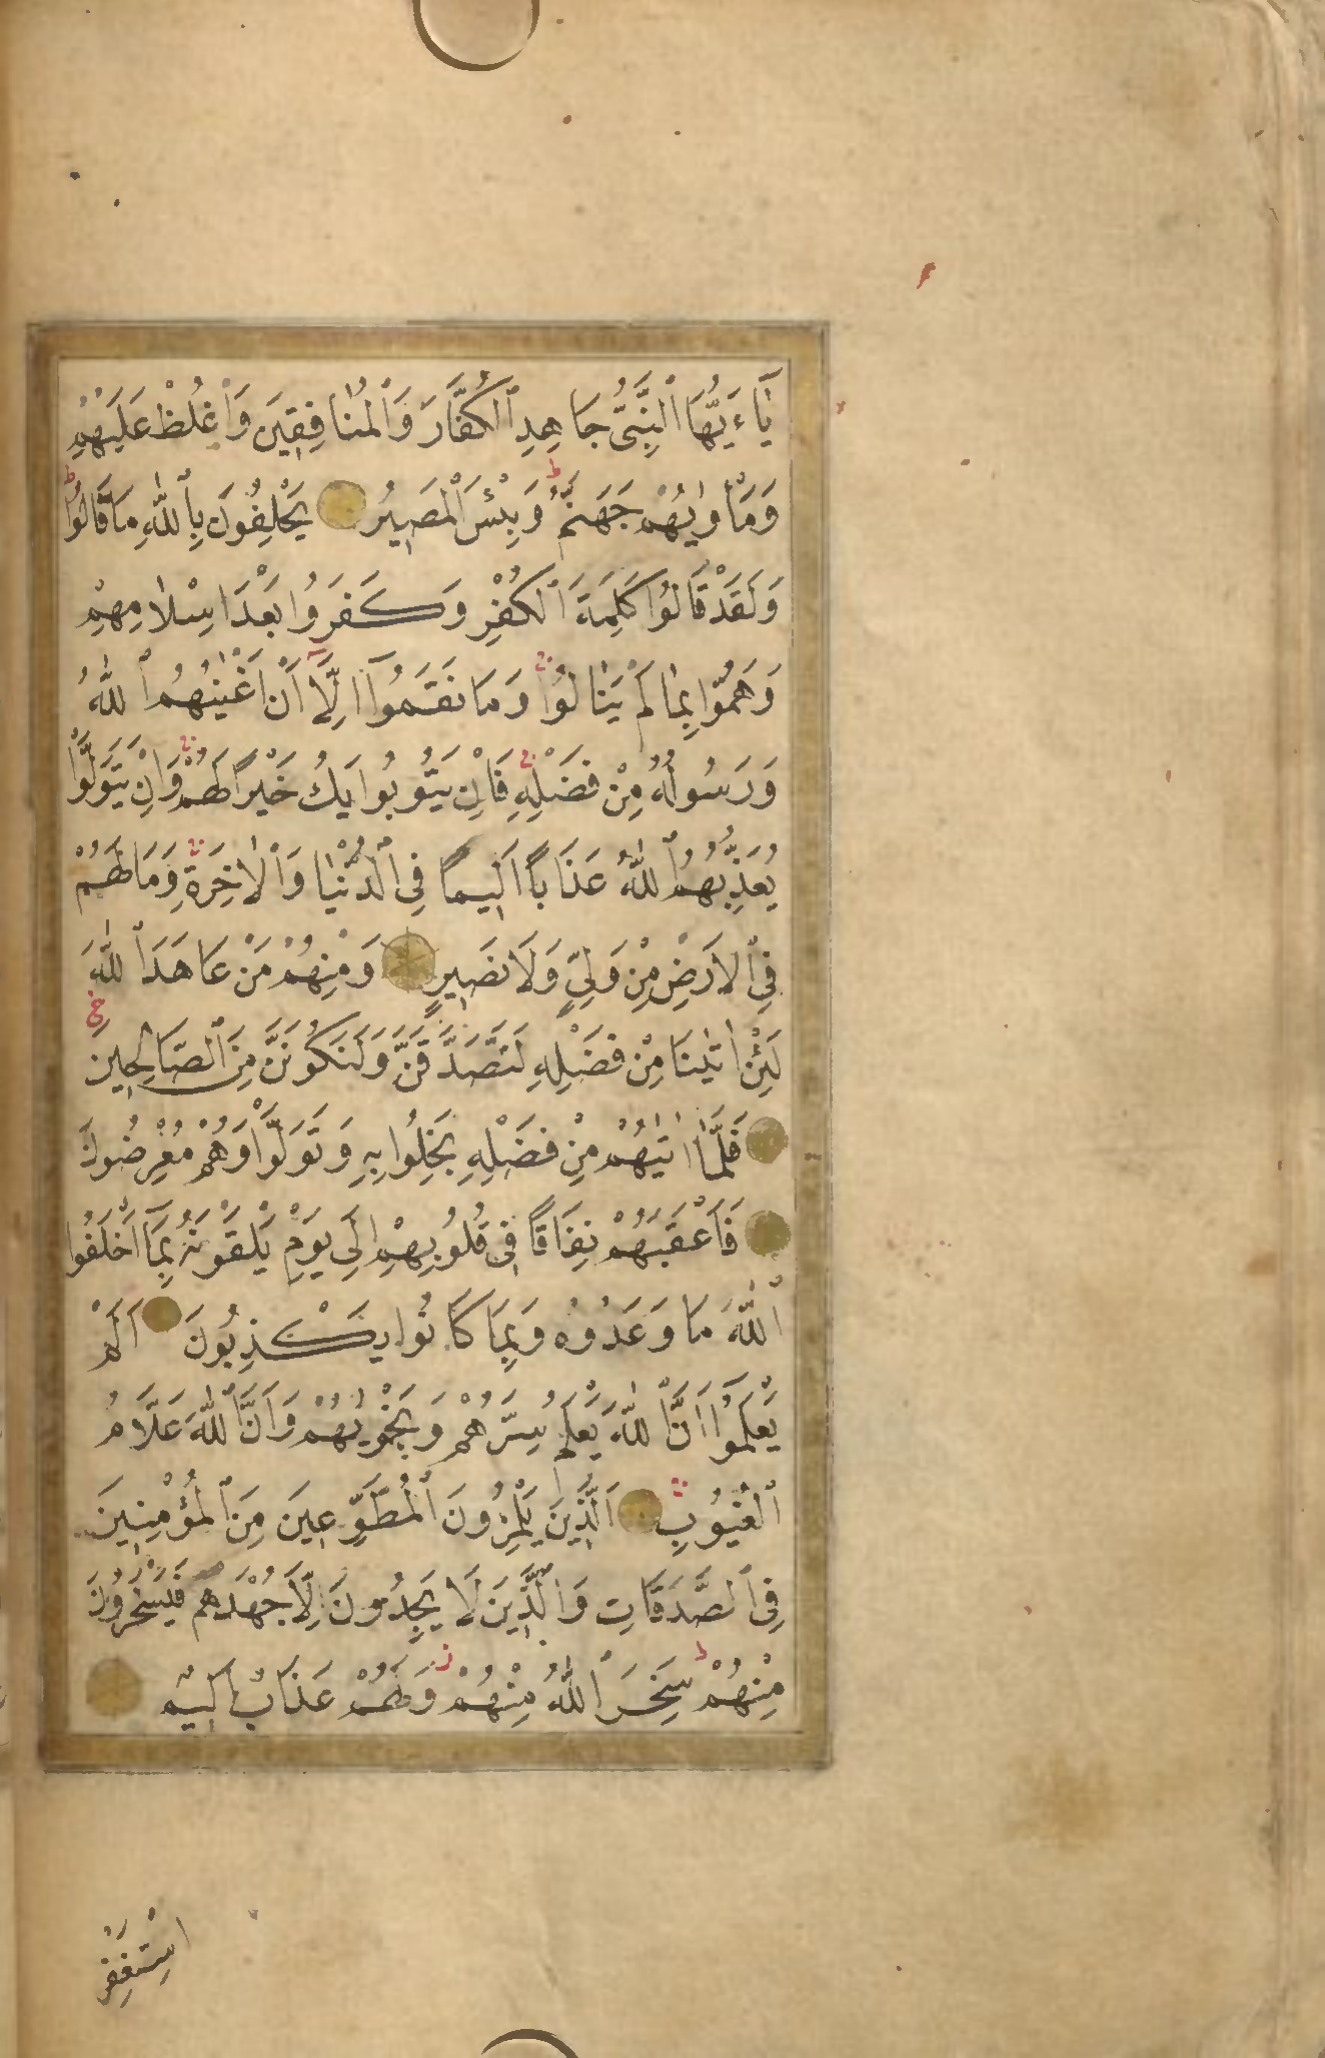 يَٰٓاءَيُّهَا ٱلنَّبِىُّ جَاهِدِ ٱلْكُفَّارَ وَٱلْمُنَافِقِينَ وَٱغْلُظْ عَلَيْهِمْ
وَمَأْوٰيهُمْ جَهَنَّمُ ط وَبِئْسَ ٱلْمَصِيرُ يَحْلِفُونَ بِٱللّٰهِ مَا قَالُوا ط
وَلَقَدْ قَالُوا كَلِمَةَ ٱلْكُفْرِ وَكَفَرُوا بَعْدَ اِسْلَامِهِمْ
وَهَمُّوا بِمَا لَمْ يَنَالُوا وَمَا نَقَمُوٓا اِلَّآ اَنْ اَغْنٰيهُمُ ٱللّٰهُ
وَرَسُولُهُ مِنْ فَضْلِهِ فَاِنْ يَتُوبُوا يَكُ خَيْرًا لَهُمْ وَاِنْ يَتَوَلَّوْا
يُعَذِّبْهُمُ ٱللّٰهُ عَذَابًا اَلِيمًا فِى ٱلدُّنْيَا وَٱلْاٰخِرَةِ وَمَا لَهُمْ
فِى ٱلْاَرْضِ مِنْ وَلِىٍّ وَلَا نَصِيرٍ وَمِنْهُمْ مَنْ عَاهَدَ ٱللّٰهَ
لَئِنْ اٰتٰينَا مِنْ فَضْلِهِ لَنَصَّدَّقَنَّ وَلَنَكُونَنَّ مِنَ ٱلصَّالِحِينَ
فَلَمَّا اٰتٰيهُمْ مِنْ فَضْلِهِ بَخِلُوا بِهِ وَتَوَلَّوْا وَهُمْ مُعْرِضُونَ
فَاَعْقَبَهُمْ نِفَاقًا فِى قُلُوبِهِمْ اِلَى يَوْمِ يَلْقَوْنَهُ بِمَآ اَخْلَفُوا
ٱللّٰهَ مَا وَعَدُوهُ وَبِمَا كَانُوا يَكْذِبُونَ اَلَمْ
يَعْلَمُوٓا اَنَّ ٱللّٰهَ يَعْلَمُ سِرَّهُمْ وَنَجْوٰيهُمْ وَاَنَّ ٱللّٰهَ عَلَّامُ
ٱلْغُيُوبِ اَلَّذِينَ يَلْمِزُونَ ٱلْمُطَّوِّعِينَ مِنَ ٱلْمُؤْمِنِينَ
فِى ٱلصَّدَقَاتِ وَٱلَّذِينَ لَا يَجِدُونَ اِلَّا جُهْدَهُمْ فَيَسْخَرُونَ
مِنْهُمْ ط سَخِرَ ٱللّٰهُ مِنْهُمْ ز وَلَهُمْ عَذَابٌ اَلِيمٌ
اسْتَغْفِرْ